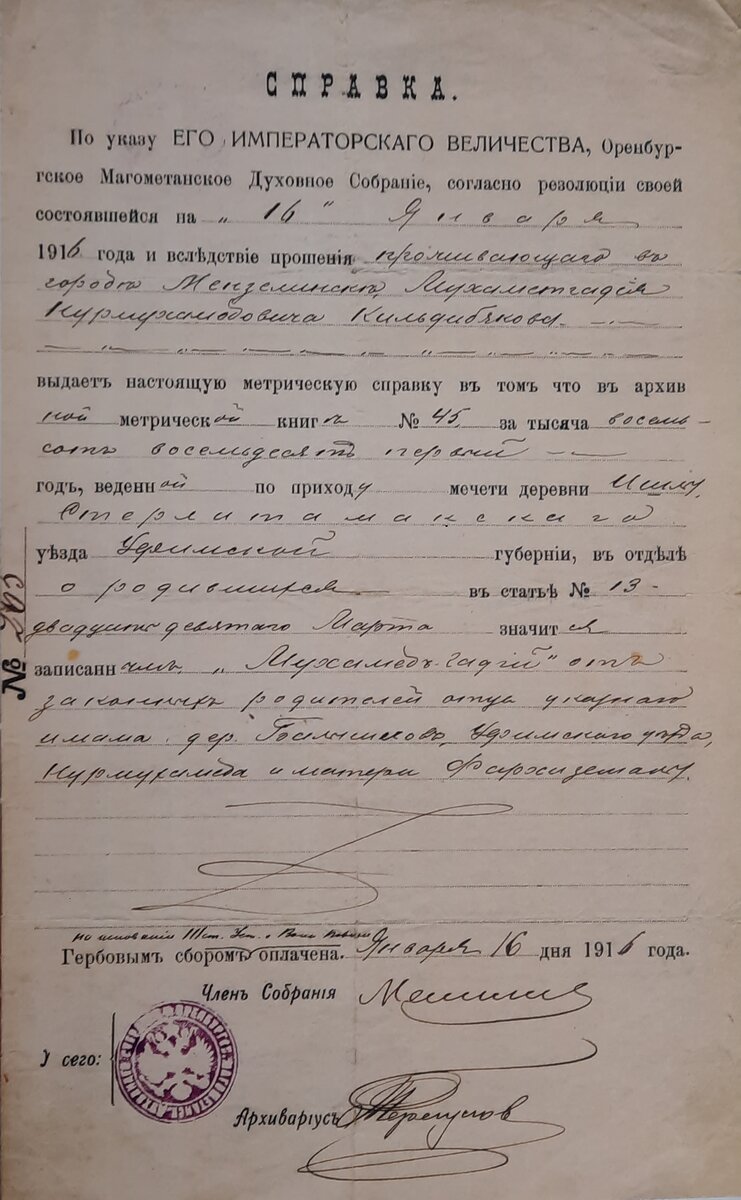 СПРАВКА.
По указу ЕГО ИМПЕРАТОРСКАГО ВЕЛИЧЕСТВА, Оренбур-
гское Магометанское Духовное Собраніе, согласно резолюціи своей
состоявшейся на „ 16 “ Января
1916 года и вслѣдствіе прошенія проживающаго въ
городѣ Мензелинскѣ, Мухаметгадія
Нурмухамедовича Кильдибѣкова
выдаетъ настоящую метрическую справку въ томъ что въ архив
ной метрической книгѣ № 45, за тысяча восемь-
сотъ восемьдесятъ первый
годъ, веденной по приходу мечети деревни
Стерлитамакскаго
уѣзда Уфимской губерніи, въ отдѣлѣ
о родившихся въ статьѣ № 13-
двадцать девятаго Марта значится
записаннымъ „Мухамедъ-Гадій“ отъ
законныхъ родителей отца указнаго
имама дер. Уфимскаго уѣзда,
Нурмухамеда и матери
на основаніи Уст.
Гербовымъ сборомъ оплачена. Января 16 дня 1916 года.
Членъ Собранія
сего:
Архиваріусъ
№